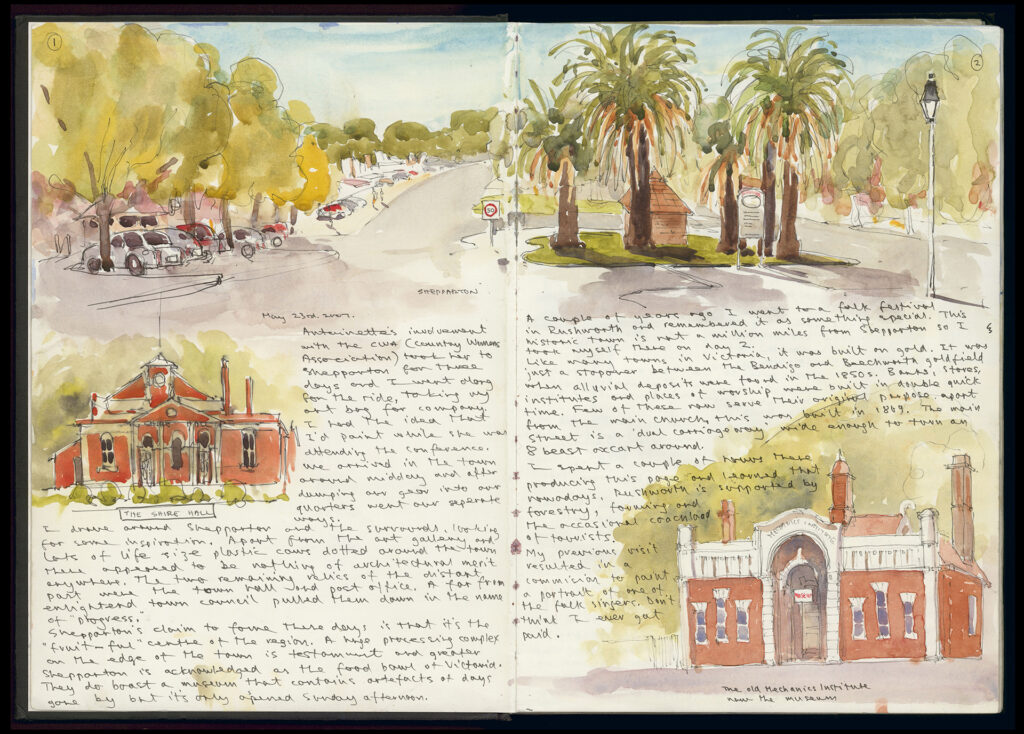 1
SHEPPARTON
May 23rd. 2007.
Antoinette's involvement
with the CWA (Country Womens
Association) took her to
Shepparton for three
days and I went along
for the ride, taking my
art bag for company.
I had the idea that
I'd paint while she was
attending the conference.
We arrived in the town
around midday and after
dumping our gear into our
quarters went our seperate
ways.
THE SHIRE HALL
I drove around Shepparton and the surrounds, looking
for some inspiration. Apart from the art gallery and
lots of life size plastic cows dotted around the town
there appeared to be nothing of architectural merit
anywhere. The two remaining relics of the distant
past were the town hall and post office. A far from
enlightend town council pulled them down in the name
of "progress.
Shepparton's claim to fame these days is that it's the
"fruit-ful" centre of the region. A huge processing complex
on the edge of the town is testament and greater
Shepparton is acknowledged as the food bowl of Victoria.
They do boast a museum that contains artefacts of days
gone by but it's only opened Sunday afternoon.
2
50
A couple of years ago I went to a folk festival
in Rushworth and remembered it as something special. This
historic town is not a million miles from Shepparton so I
took myself there on day 2.
Like many towns in Victoria, it was built on gold. It was
just a stopover between the Bendigo and Beechworth goldfield
when alluvial deposits were found in the 1850s. Banks, stores,
institutes and places of worship were built in double quick
time. Few of these now serve their original purpose apart
from the main church, this was built in 1869. The main
street is a 'dual carriageway' wide enough to turn an
8 beast oxcart around.
I spent a couple of hours there
producing this page and learned that
nowadays, Rushworth is supported by
forestry, farming and
the occasional coachload
of tourists.
My previous visit
resulted in a
commission to paint
a portrait of one of
the folk singers. Don't
think I ever got
paid.
MECHANICS INSTITUTE
MUSEUM
The old Mechanics Institute
now the museum